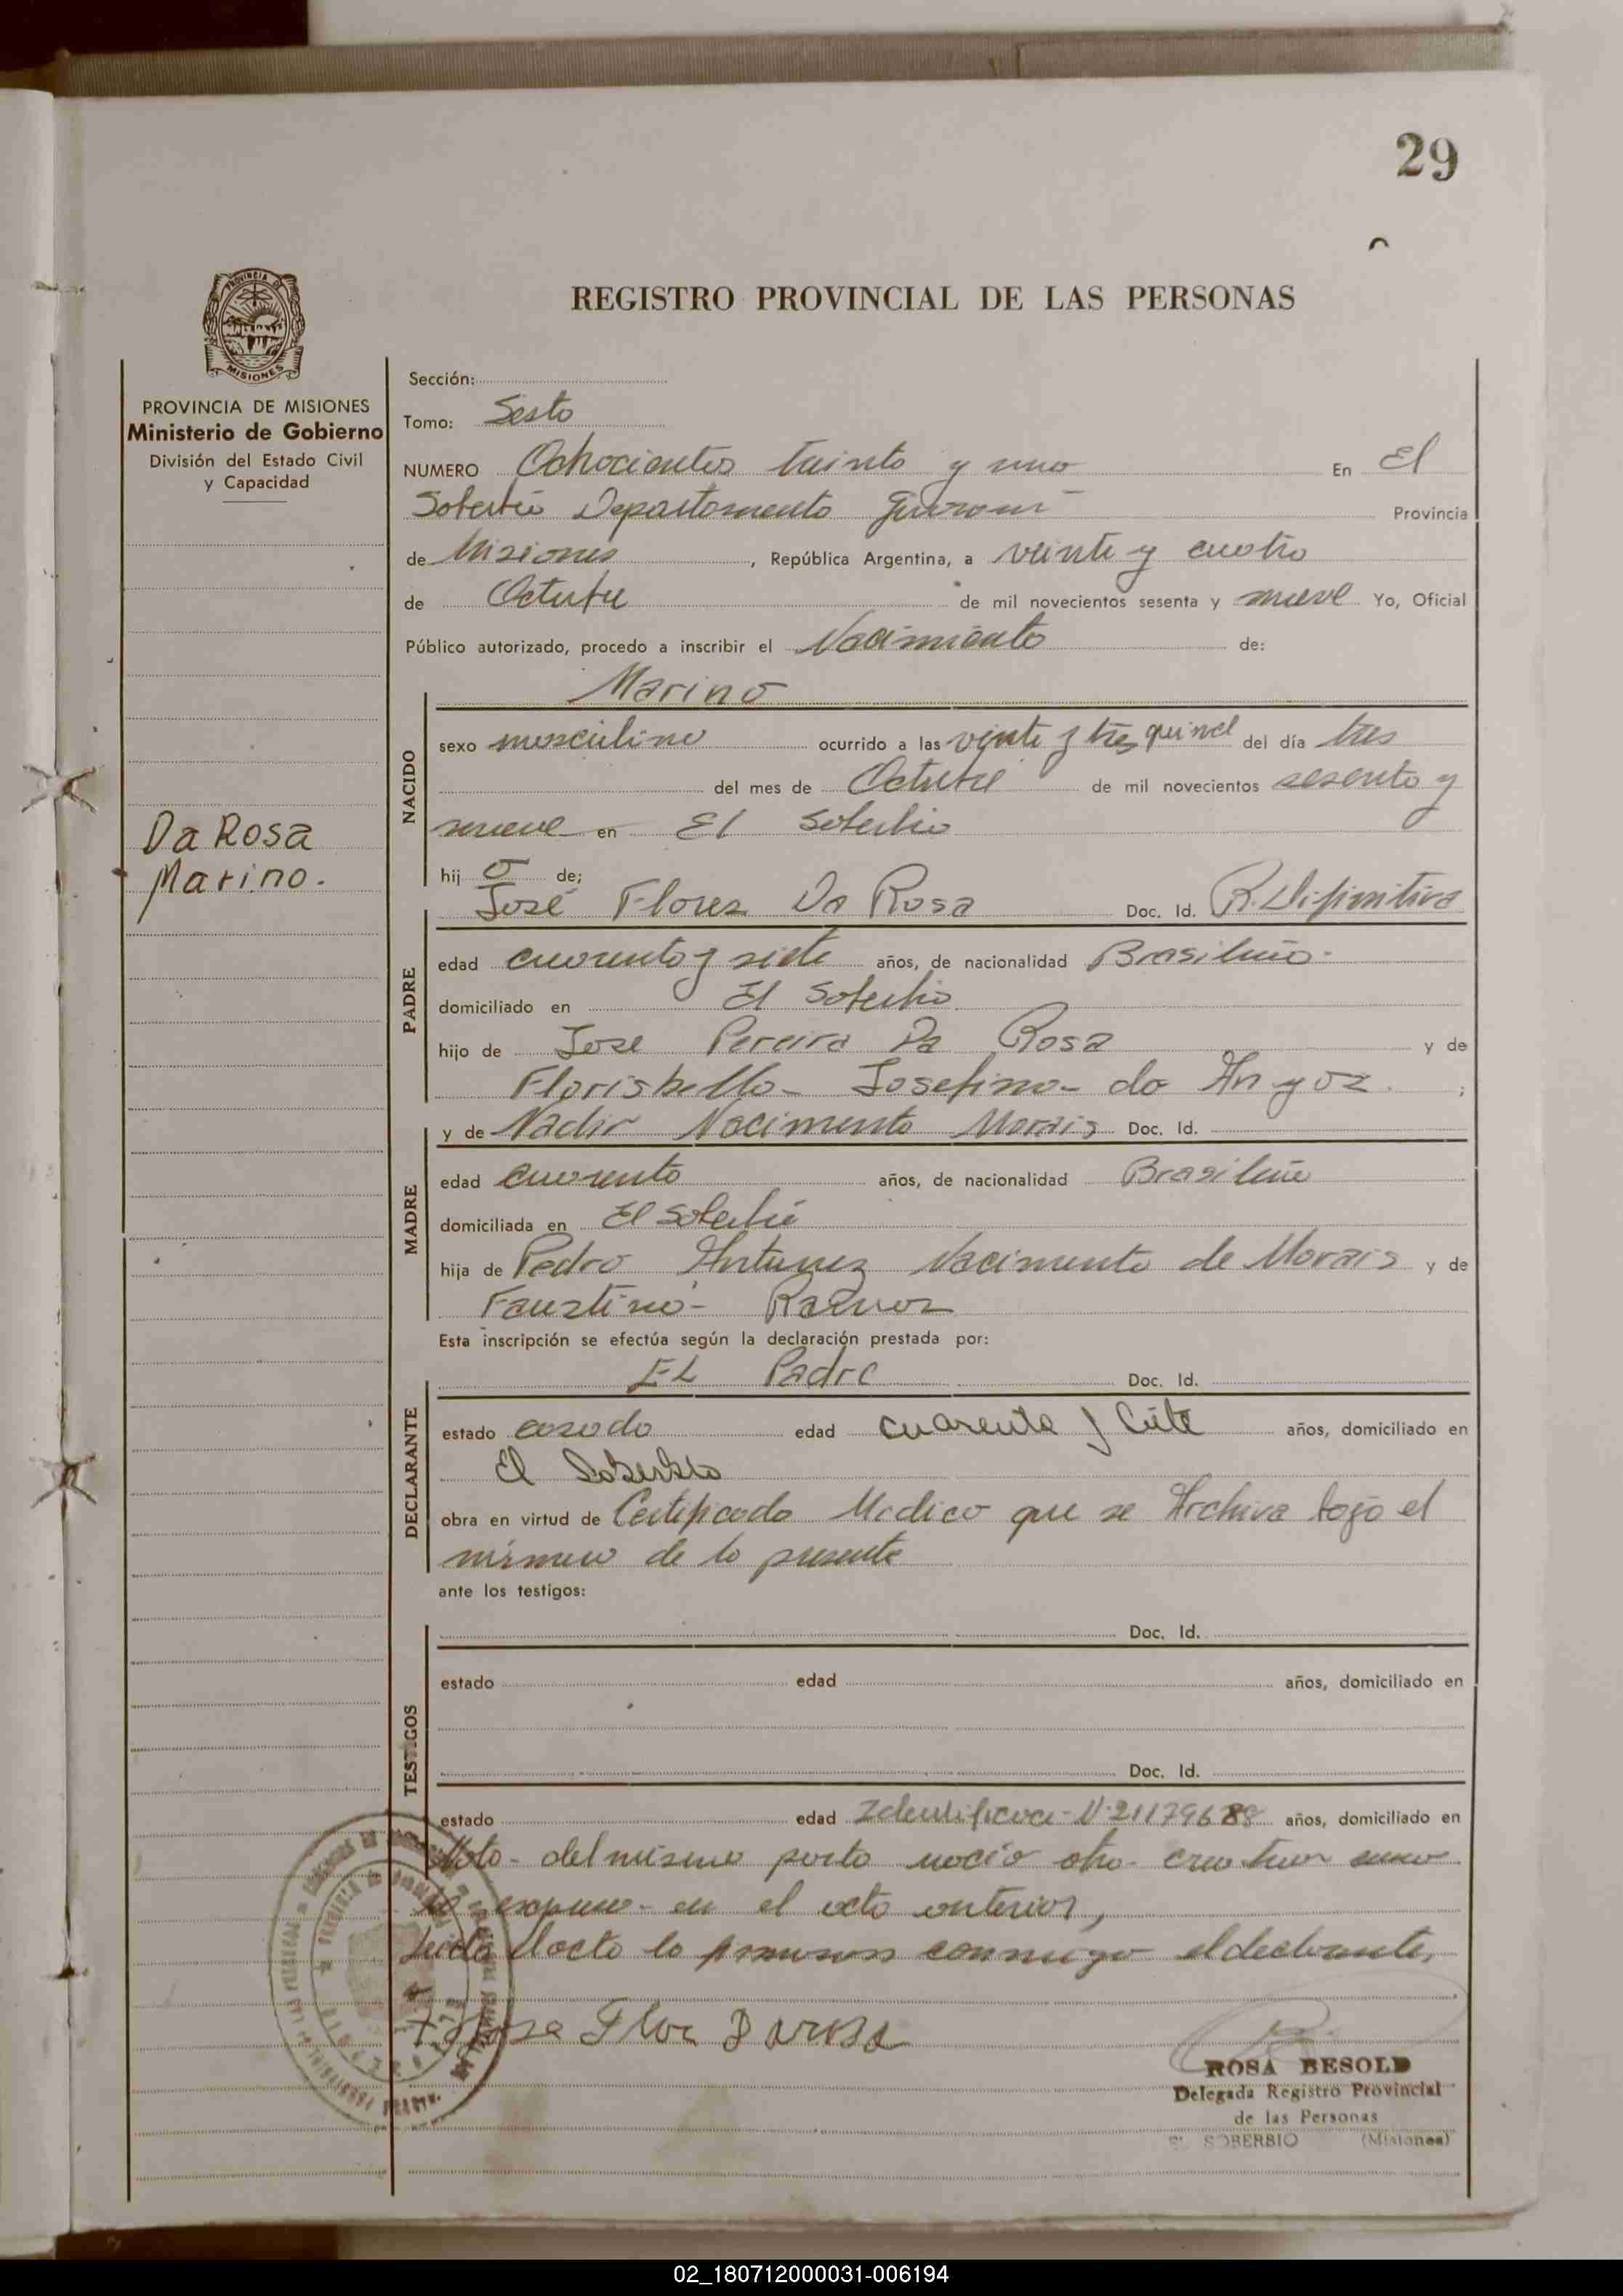 29
REGISTRO PROVINCIAL DE LAS PERSONAS
PROVINCIA DE
MISIONES
PROVINCIA DE MISIONES
Ministerio de Gobierno
División del Estado Civil
y Capacidad
Da Rosa
Marino.
Sección:
Tomo: Sesto
NUMERO Ochocientos treinta y uno En El
Soberbio Departamento Guaraní Provincia
de Misiones, República Argentina, a veinte y cuatro
de Octubre de mil novecientos sesenta y nueve Yo, Oficial
Público autorizado, procedo a inscribir el Nacimiento de:
Marino
NACIDO
sexo masculino ocurrido a las veinte y tres quince del día tres
del mes de Octubre de mil novecientos sesenta y
nueve en El Soberbio
hijo de;
José Flores Da Rosa Doc. Id. R. Difinitiva
PADRE
edad cuarenta y siete años, de nacionalidad Brasileño.
domiciliado en El Soberbio
hijo de Jose Pereira Da Rosa y de
Florisbella Josefina da ;
y de Nadir Nacimento Morais Doc. Id.
MADRE
edad cuarenta años, de nacionalidad Brasileña
domiciliada en El Soberbio
hija de Pedro Antunez Nacimento de Morais y de
Faustina Ramos
Esta inscripción se efectúa según la declaración prestada por:
EL Padre Doc. Id.
DECLARANTE
estado casado edad cuarenta y años, domiciliado en
El Soberbio
obra en virtud de Certificado Medico que se Archiva bajo el
número de la presente
ante los testigos:
Doc. Id.
TESTIGOS
estado edad años, domiciliado en
Doc. Id.
estado edad N° 21179688 años, domiciliado en
Nota- del mismo parto nació otra criatura como
se expuso en el acta anterior,
Leida el acta la firman conmigo el declarante,
Jose Flor Darosa
ROSA BESOLD
Delegada Registro Provincial
de las Personas
EL SOBERBIO (Misiones)
02_180712000031-006194